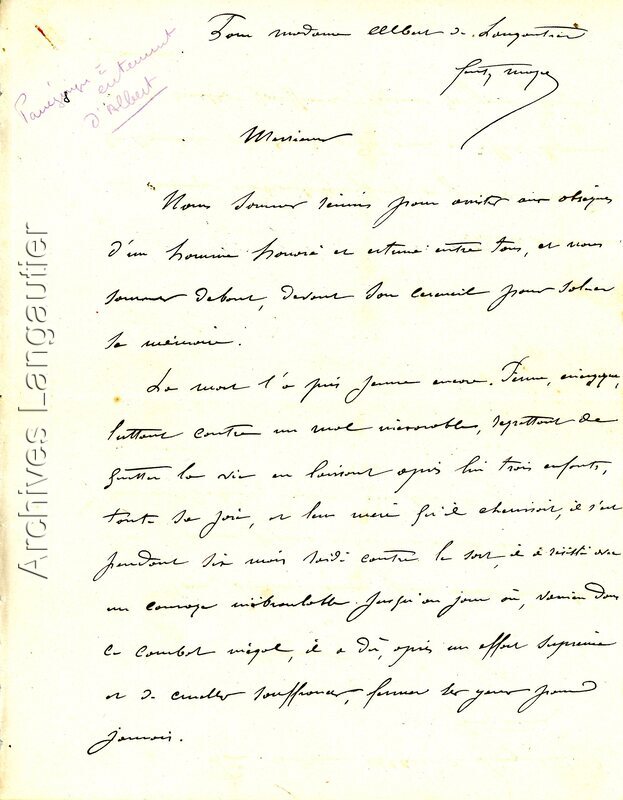 Pour madame Albert de Langautier
Panégyrique à
enterrement
d'Albert
Messieurs
Nous sommes réunis pour assister aux obsèques
d'un homme honoré et estimé entre tous, et nous
sommes debout, devant son cercueil pour saluer
sa mémoire.
La mort l'a pris jeune encore. Ferme, énergique,
luttant contre un mal inexorable, regrettant de
quitter la vie en laissant après lui trois enfants,
toute sa joie, et leur mère qu'il chérissait, il s'est
pendant six mois raidi contre le sort, il a résisté avec
un courage inébranlable jusqu'au jour où, vaincu dans
ce combat inégal, il a dû, après un effort suprême
et de cruelles souffrances, fermer les yeux pour
jamais.
Archives Langautier